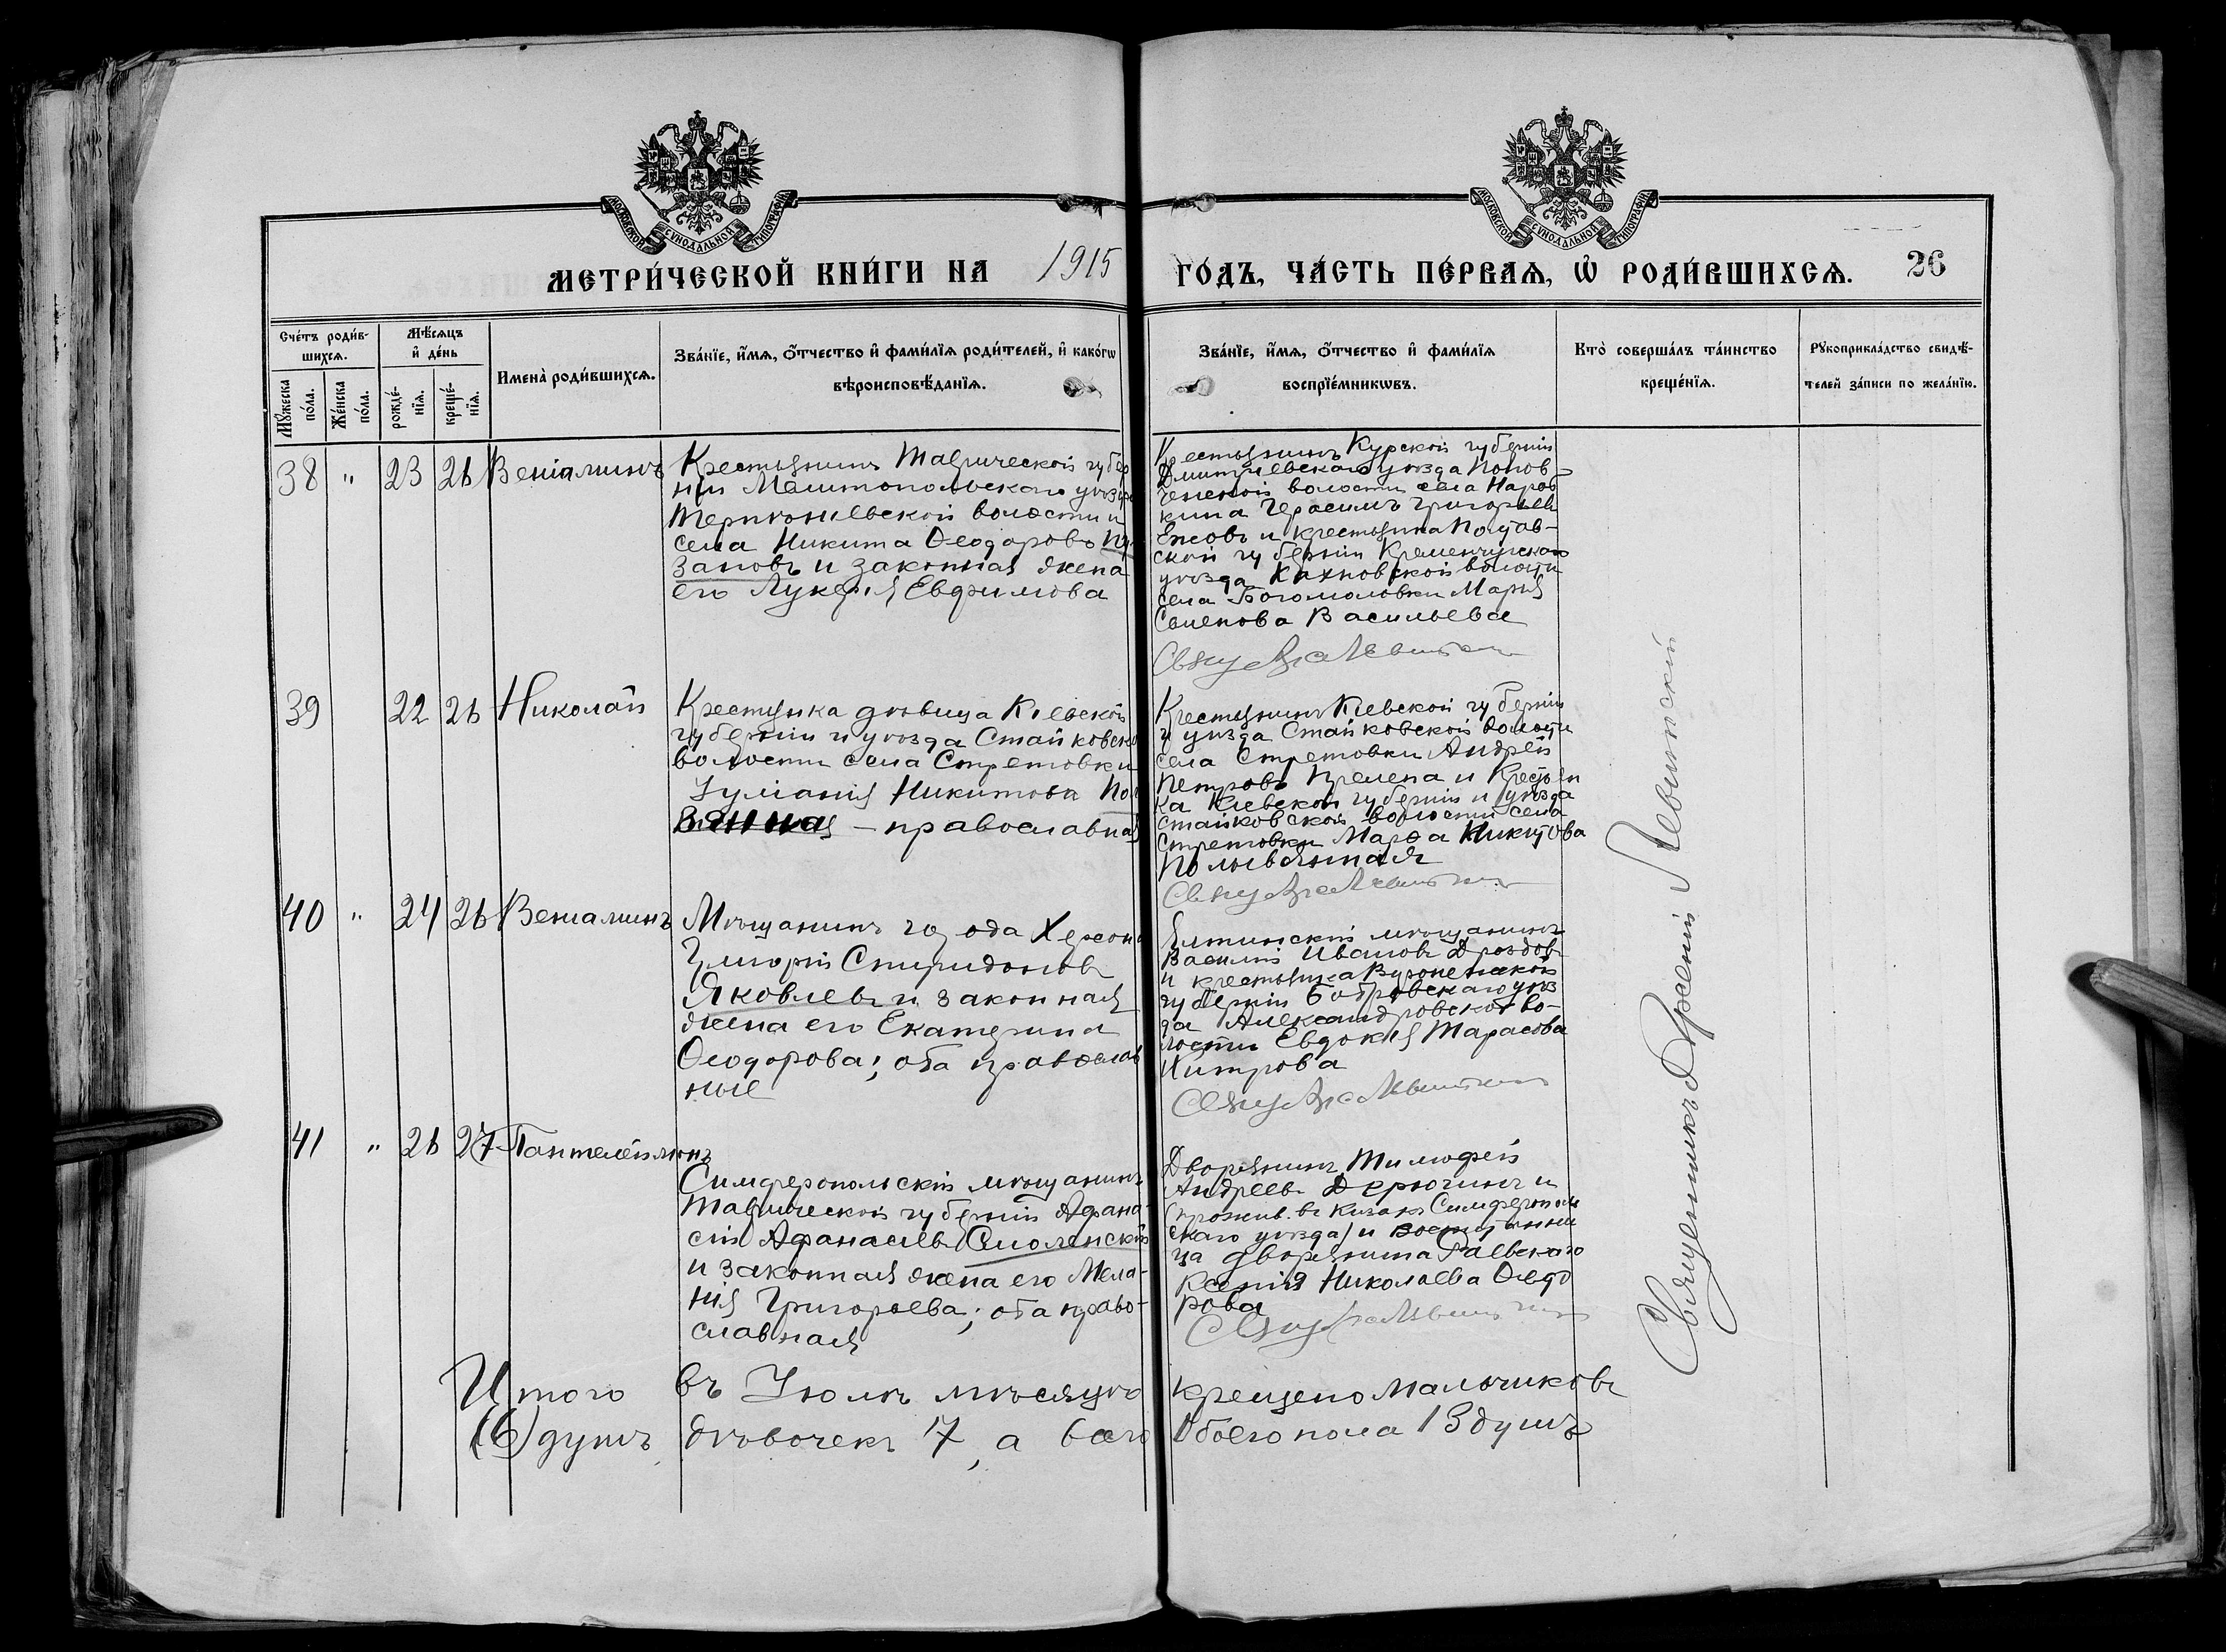 МОСКОВСКОЙ СѴНОДАЛЬНОЙ ТИПОГРАФІИ
МОСКОВСКОЙ СѴНОДАЛЬНОЙ ТИПОГРАФІИ
МЕТРИ́ЧЕСКОЙ КНИ́ГИ НА 1915 ГО́ДЪ, ЧА́СТЬ ПЕ́РВАѦ, Ѡ҆ РОДИ́ВШИХСѦ. 26
Сче́тъ роди́в-
шихсѧ.
Мꙋ́жеска
по́ла.
Же́нска
по́ла.
Мѣ́сѧцъ
и҆ де́нь
рожде́-
нїѧ.
креще́-
нїѧ.
Имена̀ роди́вшихсѧ.
Зва́нїе, и҆́мѧ, ѻ҆́тчество и҆ фами́лїѧ роди́телей, и҆ како́гѡ
вѣроисповѣ́данїѧ.
Зва́нїе, и҆́мѧ, ѻ҆́тчество и҆ фами́лїѧ
воспрїе́мникѡвъ.
Кто̀ соверша́лъ та́инство
креще́нїѧ.
Рꙋкоприкла́дство свидѣ́-
телей за́писи по жела́нїю.
38 " 23 26 Веніаминъ
Крестьянинъ Таврической губер
ніи Мелитопольскаго уѣзда
Терпѣніевской волости и
села Никита Ѳеодоровъ Пу
зановъ и законная жена
его Лукерія Евфимова
Крестьянинъ Курской губерніи
Дмитріевскаго уѣзда Попов
волости села
Герасимъ Григорьев
Ежовъ и крестьянка Полтав-
ской губерніи Кременчугскаго
уѣзда Кахновской волости
села Богомоловки Марія
Семенова Васильева
39 22 26 Николай
Крестьянка дѣвица Кіевской
губерніи и уѣзда Стайковской
волости села Стретовки
Іуліанія Никитова Пол
вянная — православная
Крестьянинъ Кіевской губерніи
и уѣзда Стайковской волости
села Стретовки Андрей
Петровъ и Крестьян
ка Кіевской губерніи и уѣзда
Стайковской волости села
Стретовки Марѳа Никитова
Полывянная
40 " 24 26 Веніаминъ
Мѣщанинъ города Херсона
Григорій Спиридоновъ
Яковлевъ и законная
жена его Екатерина
Ѳеодорова; оба православ
ные
Ялтинскій мѣщанинъ
Василій Ивановъ Дроздовъ
и крестьянка Воронежской
губерніи Бобровскаго уѣз
да Александровской во-
лости Евдокія Тарасова
Хитрова
41 " 26 27 Пантелеймонъ
Симферопольскій мѣщанинъ
Таврической губерніи Афана
сій Афанасіевъ Смоленскій
и законная жена его Мела-
нія Григорьева; оба право-
славная
Дворянинъ Тимофей
Андреевъ Дерюгинъ и
(прожив. въ Симферополь
скаго уѣзда) и воспитанни
ца дворянина Раевскаго
Ксенія Николаева Ѳеодо
рова
Священникъ Арсеній Левитскій
Итого въ Іюлѣ мѣсяцѣ крещено мальчиковъ
(6) душъ, дѣвочекъ 7, а всего обоего пола 13 душъ